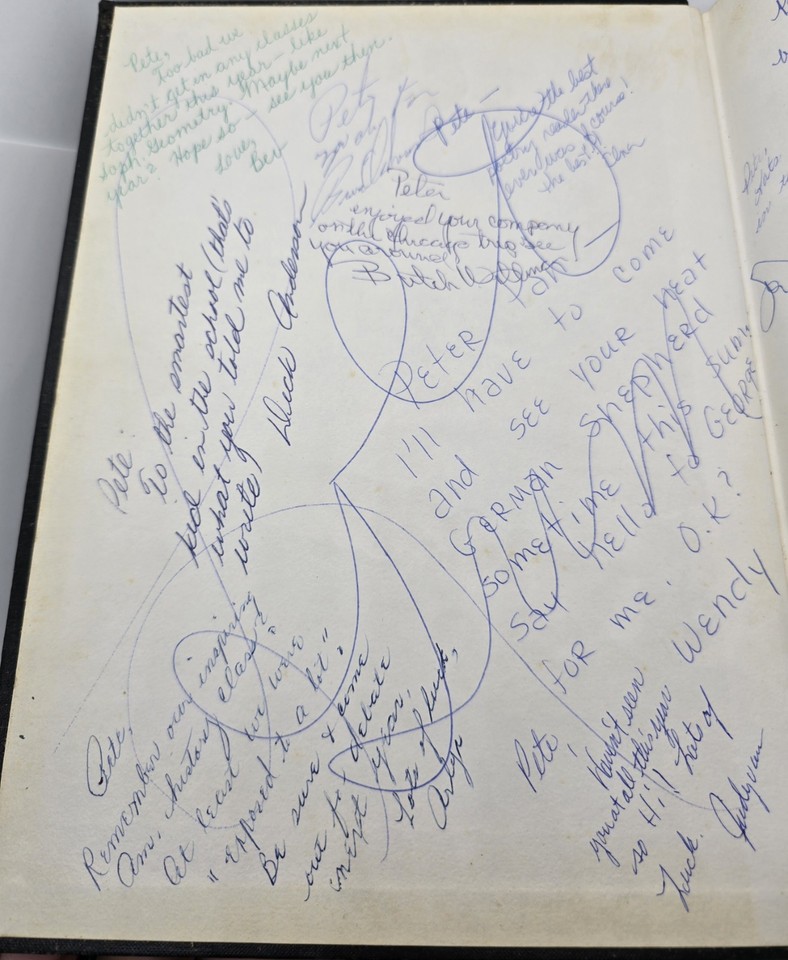 Pete,
Too bad we
didn't get in any classes
together this year - like
Soph. Geometry. Maybe next
year? Hope so - see you then.
Love,
Bev
Pete
Pete -
You're the best
ever (was of course!
the best)
Peter
enjoyed your company
on the Chicago trip see
you around
Butch
Pete
To the smartest
kid in the school (that's
what you told me to
write)
Dick Anderson
PETER
I'll have to come
and see YOUR neat
GERMAN SHEPHERD
sometime this summ
say hello to GEORGE
FOR me. O.K?
WENDY
Pete,
Remember our inspiring
Am. history class?
At least we were
"exposed to a lot".
Be sure & come
out for debate
next year.
Lots of luck,
Pete,
Haven't seen
you at all this year
so Hi!! Lots of
Luck.
Judy